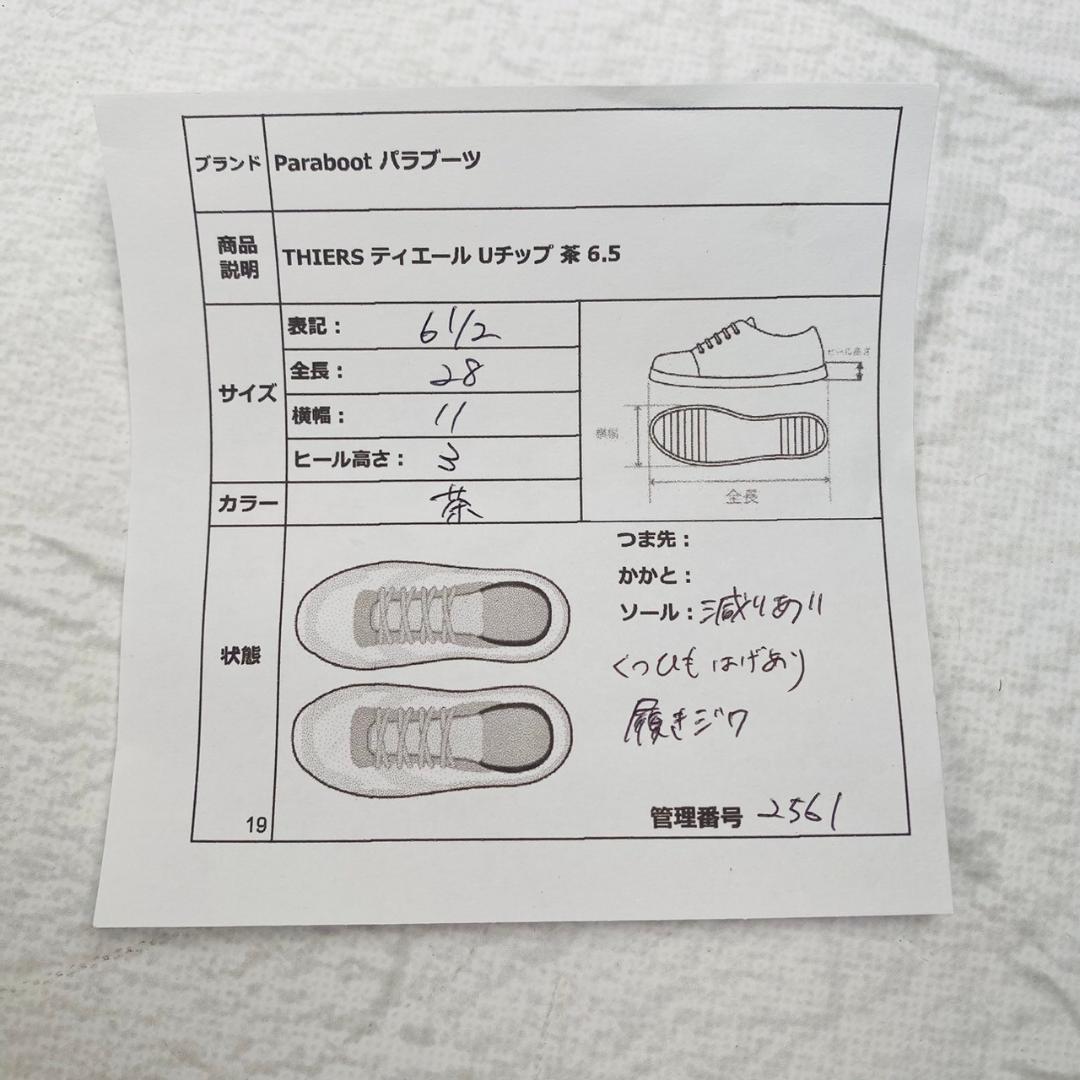 ブランド Paraboot パラブーツ
商品
説明
THIERS ティエール Uチップ 茶 6.5
サイズ
表記： 6 1/2
全長： 28
横幅： 11
ヒール高さ： 3
ヒール高さ
横幅
全長
カラー 茶
状態
つま先：
かかと：
ソール：減りあり
くつひもはげあり
履きジワ
管理番号 2561
19